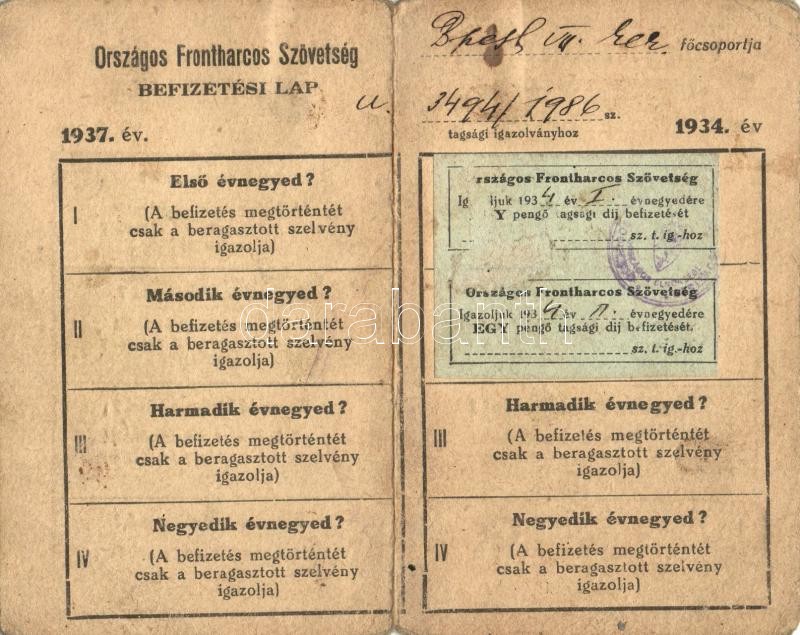 Országos Frontharcos Szövetség
BEFIZETÉSI LAP
1937. év.
Első évnegyed?
I
(A befizetés megtörténtét
csak a beragasztott szelvény
igazolja)
Második évnegyed?
II
(A befizetés megtörténtét
csak a beragasztott szelvény
igazolja)
Harmadik évnegyed?
III
(A befizetés megtörténtét
csak a beragasztott szelvény
igazolja)
Negyedik évnegyed?
IV
(A befizetés megtörténtét
csak a beragasztott szelvény
igazolja)
Bpest VII. ker főcsoportja
3494/1986 sz.
tagsági igazolványhoz
1934. év
rszágos Frontharcos Szövetség
Ig ljuk 1934 év I. évnegyedére
Y pengő agsági díj befizetését
sz. t. ig.-hoz
Országos Frontharcos Szövetség
Igazoljuk 1934 év II. évnegyedére
EGY pengő tagsági díj befizetését.
sz. t. ig.-hoz
Harmadik évnegyed?
III
(A befizetés megtörténtét
csak a beragasztott szelvény
igazolja)
Negyedik évnegyed?
IV
(A befizetés megtörténtét
csak a beragasztott szelvény
igazolja)
darabanth